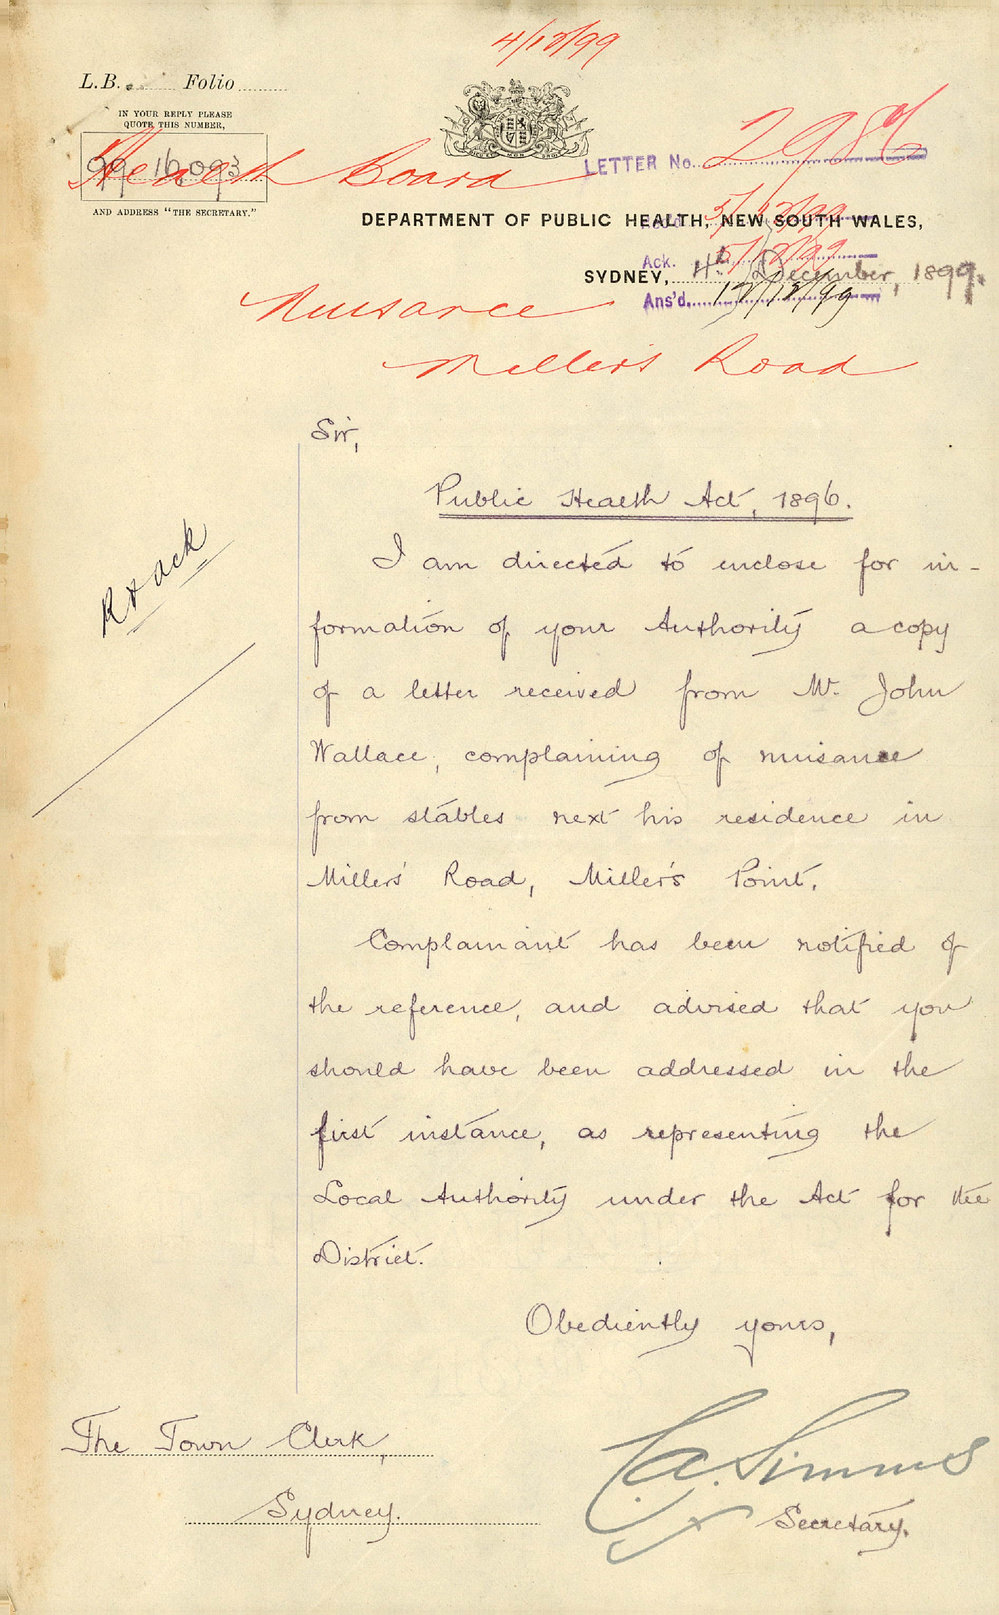 4/12/99
L.B. Folio
IN YOUR REPLY PLEASE
QUOTE THIS NUMBER,
99 16,093
AND ADDRESS "THE SECRETARY."
Health Board
LETTER No. 2986
DEPARTMENT OF PUBLIC HEALTH, NEW SOUTH WALES,
Rec'd. 5/12/99
Ack. 5/12/99
SYDNEY, 4th December, 1899.
Ans'd. 12/12/99
Nuisance
Miller's Road
Sir,
Public Health Act, 1896.
I am directed to enclose for in-
formation of your Authority a copy
of a letter received from Mr. John
Wallace, complaining of nuisance
from stables next his residence in
Millers' Road, Miller's Point.
Complainant has been notified of
the reference, and advised that you
should have been addressed in the
first instance, as representing the
Local Authority under the Act for the
District.
Obediently yours,
R & ack
The Town Clerk,
Sydney.
C.A. Simms
Secretary.